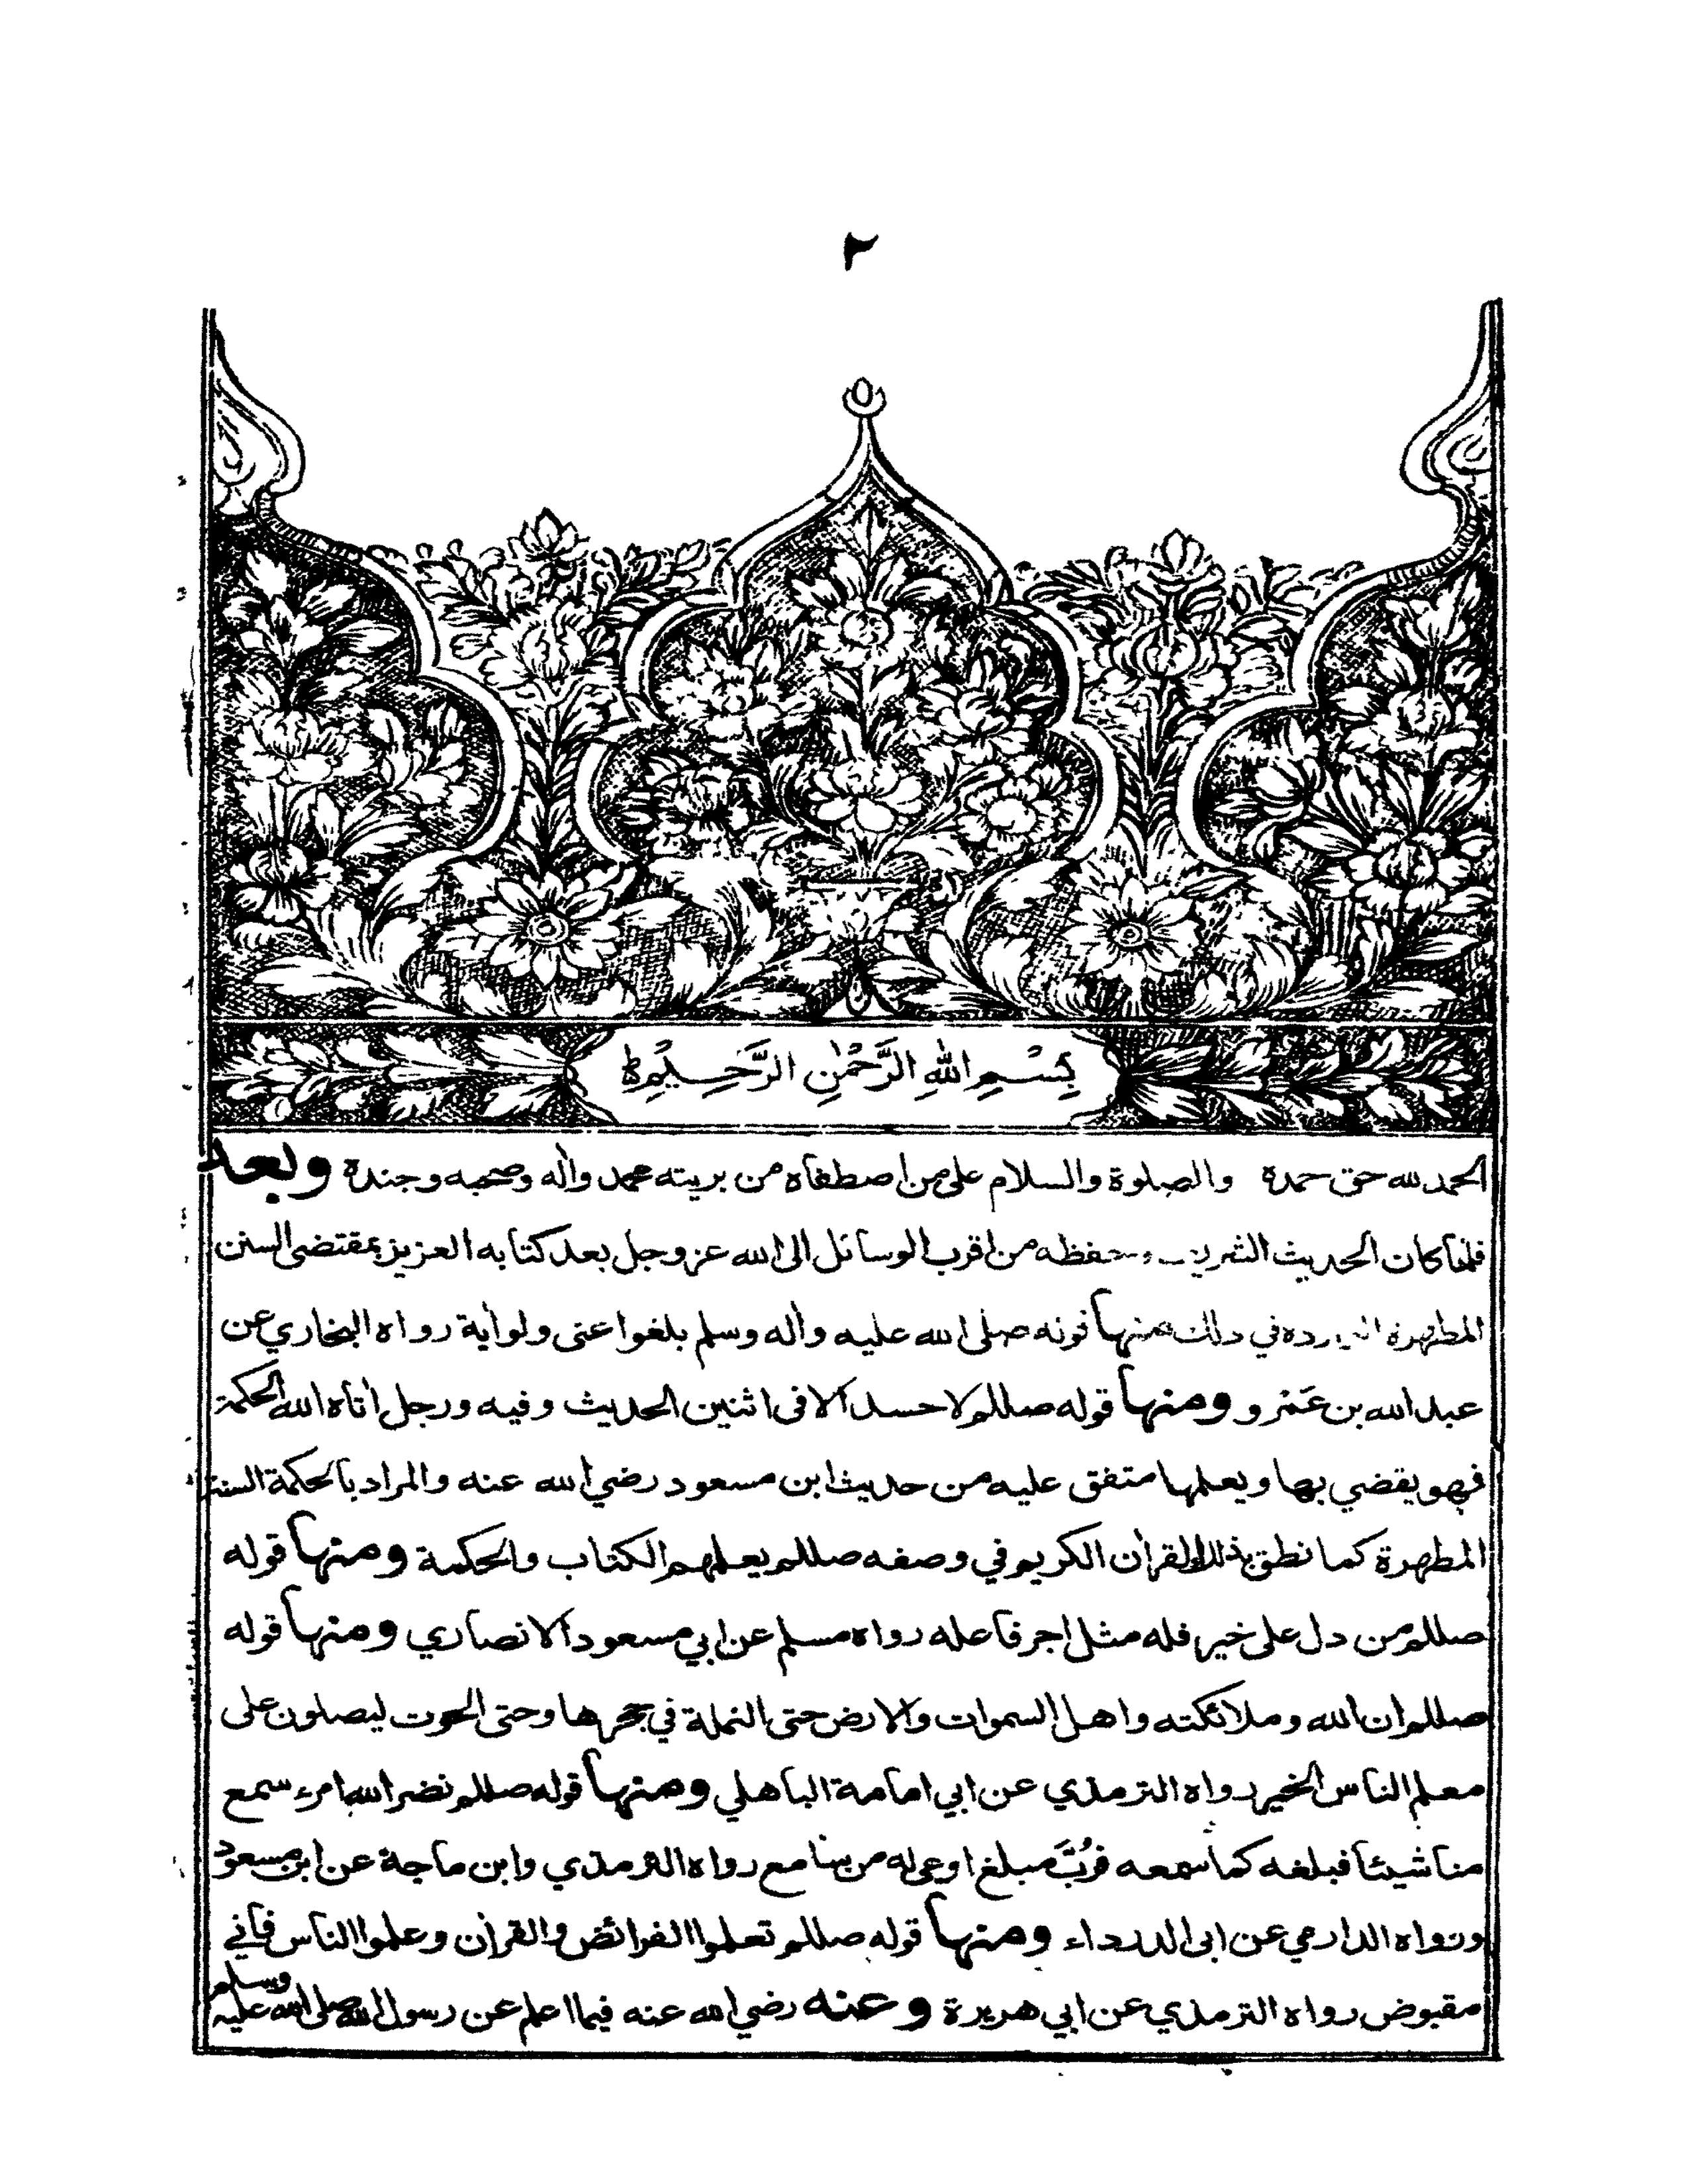 ٢
بِسْمِ اللهِ الرَّحْمٰنِ الرَّحِيْمِ
الحمد لله حق حمدة والصلوة والسلام على من اصطفاه من بريته محمد واٰله وصحبه وجندة وبعد
فلما كان الحديث الشريف وحفظه من اقرب الوسائل الى الله عز وجل بعد كتابه العزيز بمقتضى السنن
المطهرة في ذلك منها قوله صلى الله عليه واٰله وسلم بلغوا عنى ولواٰية رواه البخاري عن
عبد الله بن عَمْرو ومنها قوله صللم لا حسد الا فى اثنين الحديث وفيه ورجل اٰتاه الله الحكمة
فهو يقضي بها ويعلمها متفق عليه من حديث ابن مسعود رضي الله عنه والمراد بالحكمة السنة
المطهرة كما نطق بذلك القراٰن الكريم في وصفه صللم يعلمهم الكتاب والحكمة ومنها قوله
صللم من دل على خير فله مثل اجر فاعله رواه مسلم عن ابي مسعود الانصاري ومنها قوله
صللم ان الله وملائكته واهل السموات والارض حتى النملة في جحرها وحتى الحوت ليصلون على
معلم الناس الخير رواه الترمذي عن ابي امامة الباهلي ومنها قوله صللم نضر الله امرء سمع
منا شيئا فبلغه كما سمعه فرُبَّ مبلغ اوعى له من سامع رواه الترمذي وابن ماجة عن ابن مسعود
ورواه الدارمي عن ابى الدرداء ومنها قوله صللم تعلموا الفرائض والقراٰن وعلموا الناس فاني
مقبوض رواه الترمذي عن ابي هريرة وعنه رضي الله عنه فيما اعلم عن رسول الله صلى الله عليه وسلم